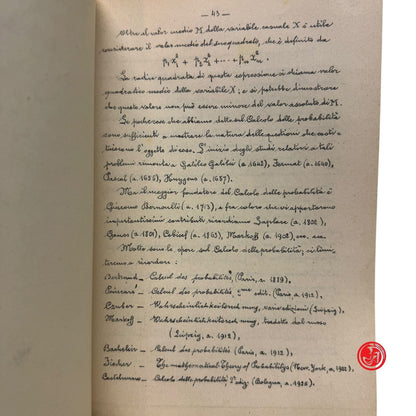 — 43 —
Oltre al valor medio M della variabile casuale X è utile
considerare il valor medio del suo quadrato, che è definito da
p₁x₁² + p₂x₂² + ... + pₙxₙ².
La radice quadrata di questa espressione si chiama valor
quadratico medio della variabile X; e si potrebbe dimostrare
che questo valore non può essere minore del valore assoluto di M.
Le poche cose che abbiamo detto sul Calcolo delle probabilità
sono sufficienti a mostrare la natura delle questioni che costi-
tuiscono l'oggetto di esso. L'inizio degli studi relativi a tali
problemi rimonta a Galileo Galilei (a. 1642), Fermat (a. 1640),
Pascal (a. 1656), Huygens (a. 1657).
Ma il maggior fondatore del Calcolo delle probabilità è
Giacomo Bernoulli (a. 1713), e fra coloro che vi apportarono
importantissimi contributi ricordiamo Laplace (a. 1802),
Gauss (a. 1801), Cebicef (a. 1865), Markoff (a. 1902), ecc. ecc.
Molte sono le opere sul Calcolo delle probabilità; ci limi-
teremo a ricordare:
Bertrand — Calcul des probabilités, (Paris, a. 1889).
Poincaré — Calcul des probabilités, edit. (Paris, a. 1912).
Czuber — Wahrscheinlichkeitsrechnung, varie edizioni (Leipzig).
Markoff — Wahrscheinlichkeitsrechnung, tradotto dal russo
(Leipzig, a. 1912).
Bachelier — Calcul des probabilités (Paris, a. 1912).
Fischer — The mathematical Theory of Probabilitys (New York, a. 1922).
Castelnuovo — Calcolo delle probabilità, 2ª ediz. (Bologna, a. 1926).